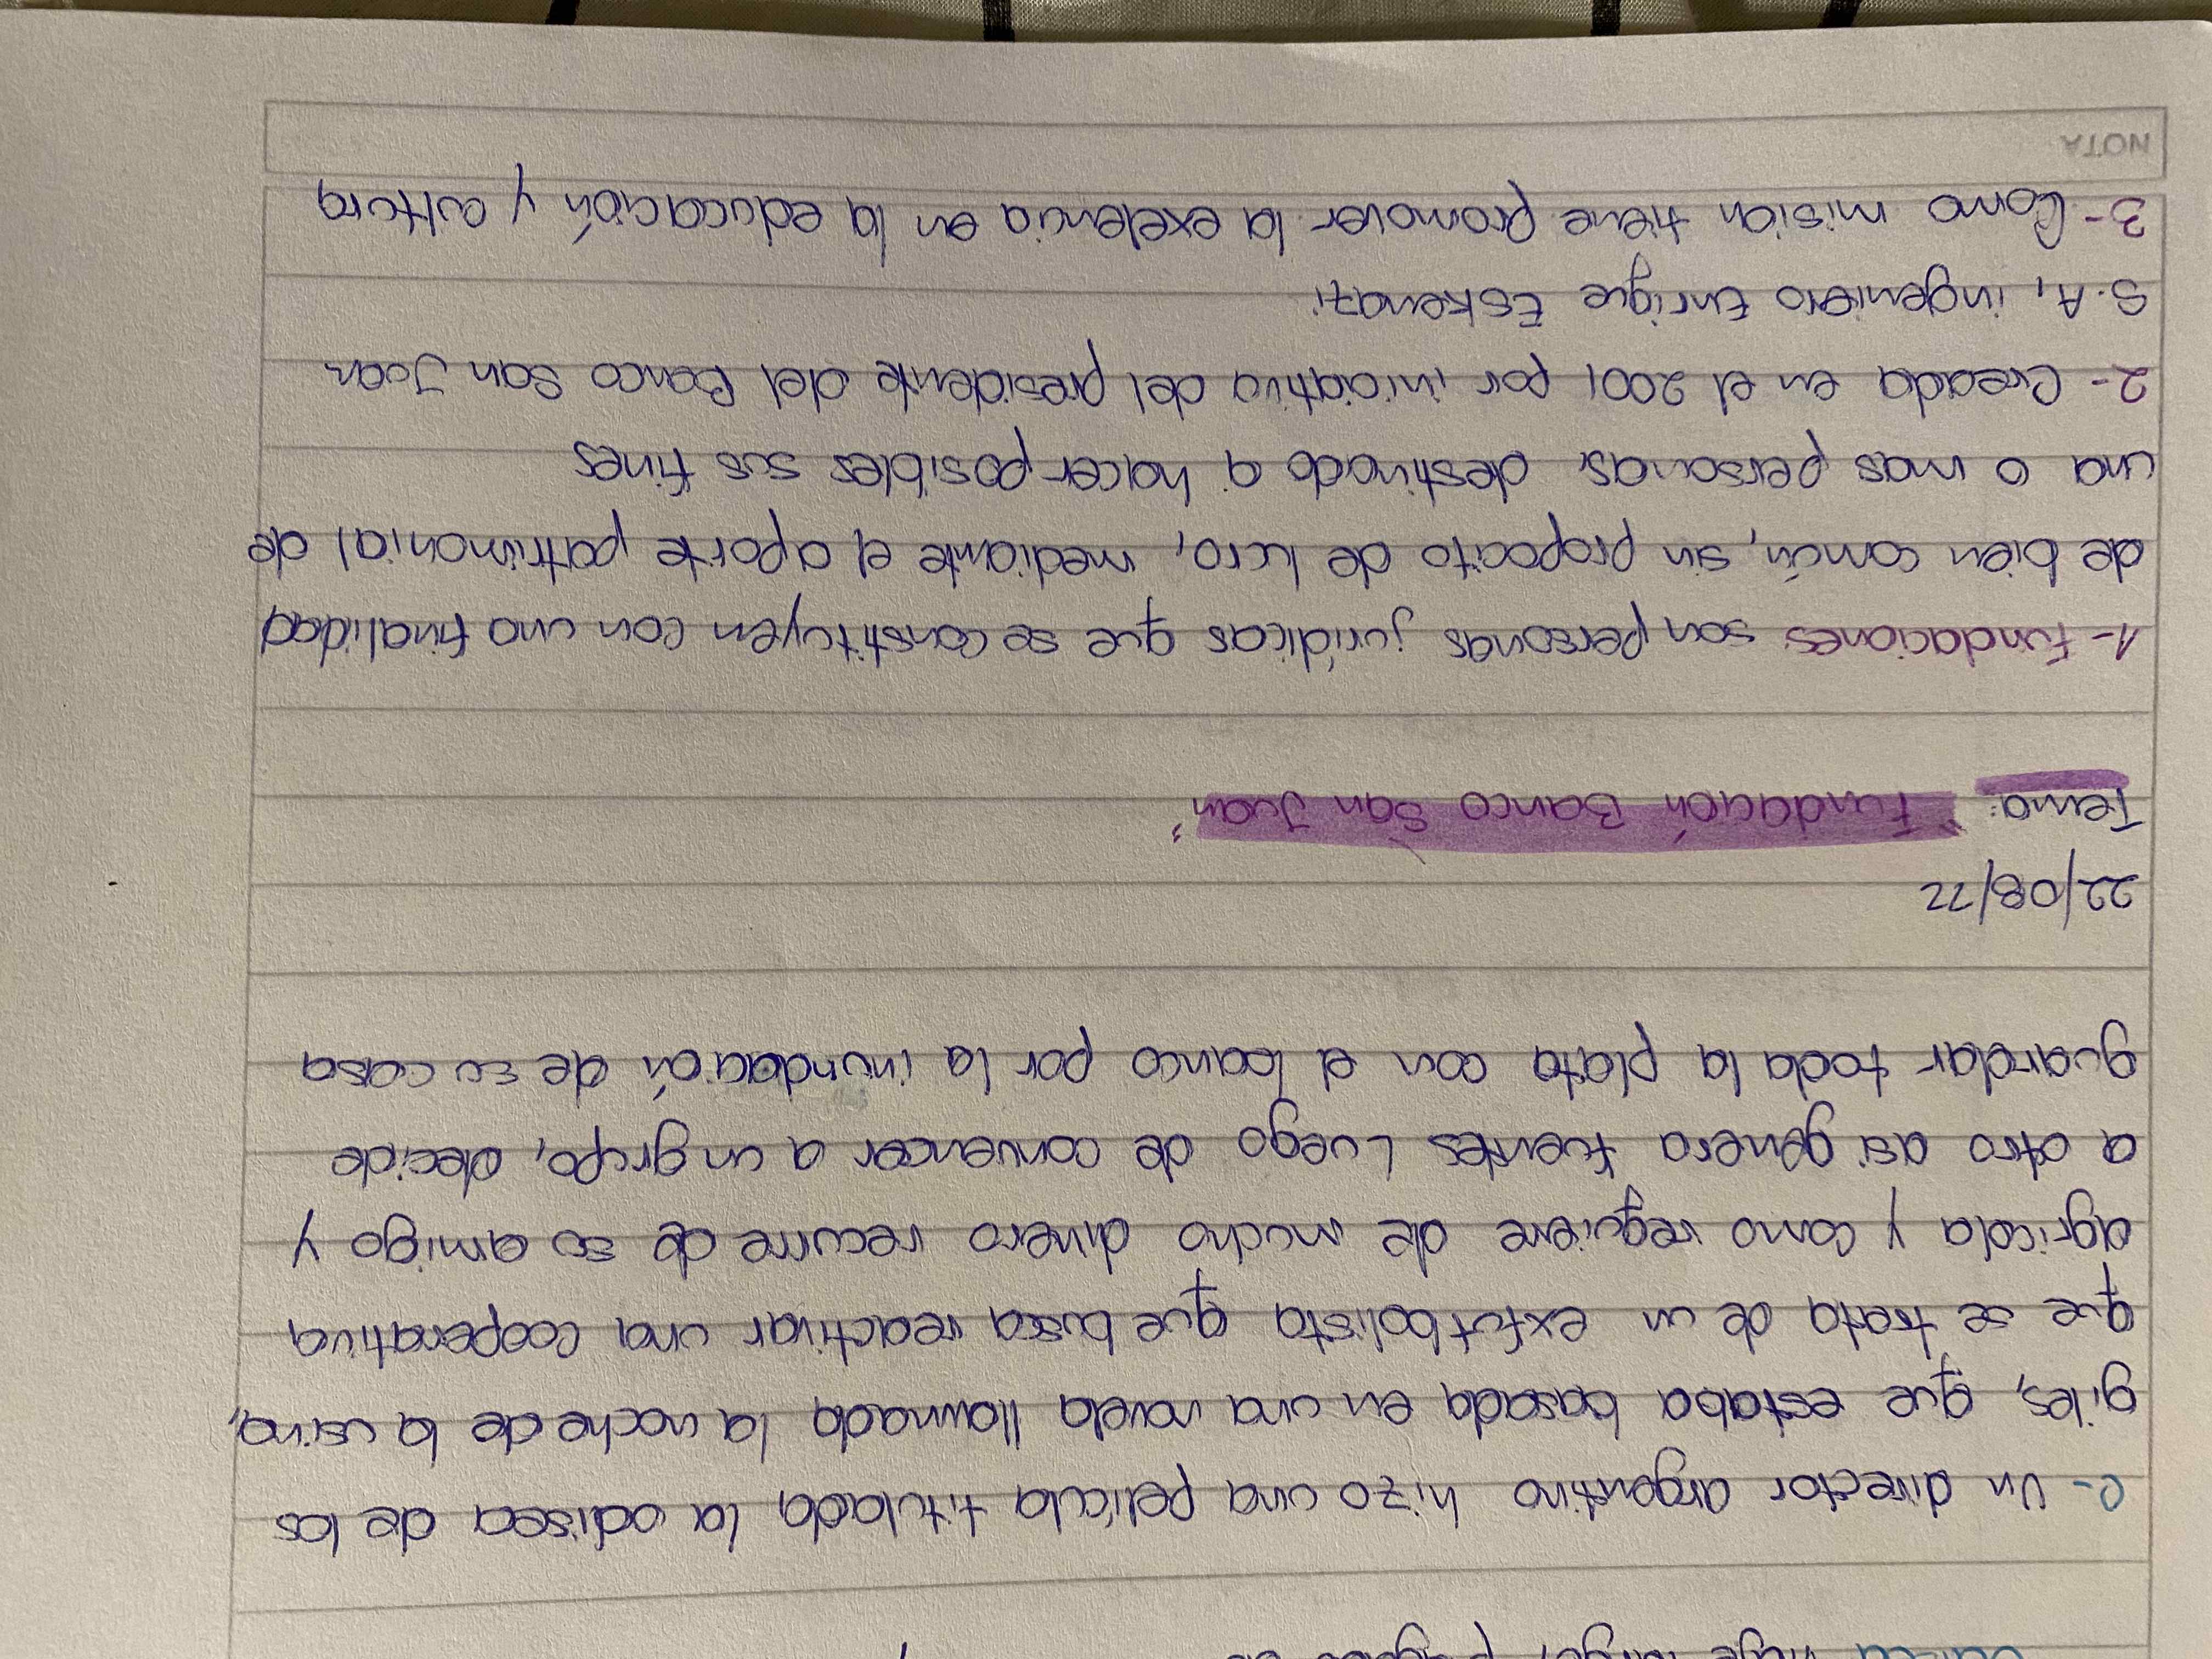 c- Un director argentino hizo una película titulada la odisea de los
giles, que estaba basada en una novela llamada la noche de la usina,
que se trata de un exfutbolista que busca reactivar una cooperativa
agricola y como requiere de mucho dinero recurre de su amigo y
a otro asi genera fuentes Luego de convencer a un grupo, decide
guardar toda la plata con el banco por la inundación de su casa
22/08/22
Tema: "Fundación Banco San Juan"
1- Fundaciones son personas jurídicas que se constituyen con una finalidad
de bien común, sin propocito de lucro, mediante el aporte patrimonial de
una o mas personas destinado a hacer posibles sus fines
2- Creada en el 2001 por iniciativa del presidente del Banco San Juan
S.A, ingeniero Enrique Eskenazi
3- Como misión tiene promover la exelencia en la educación y cultura
NOTA